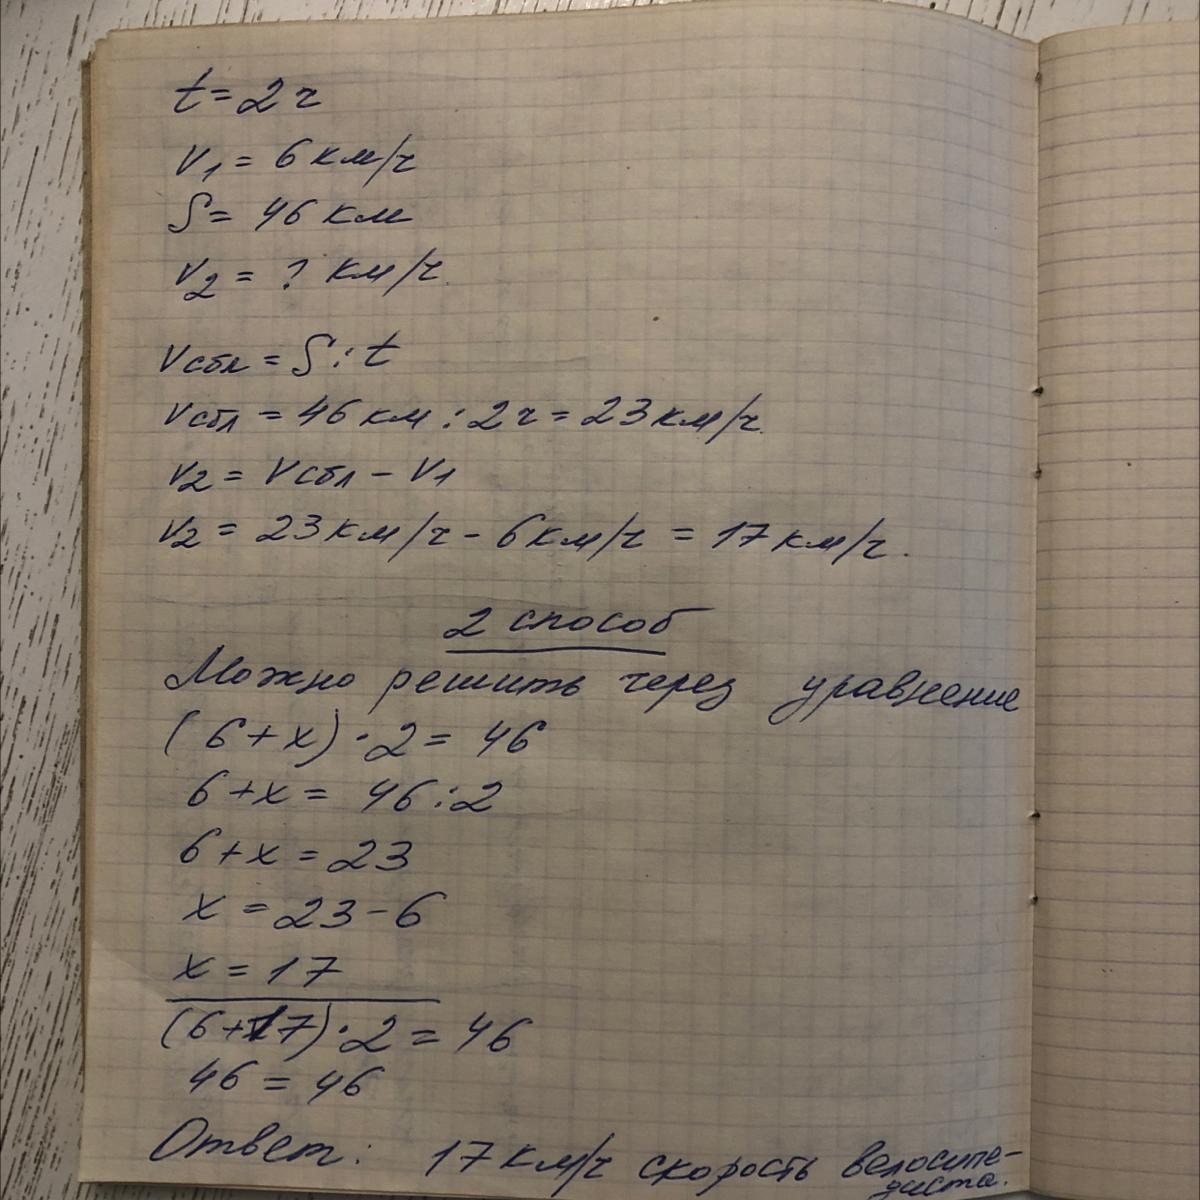 t = 2ч
v1 = 6 км/ч
S = 46 км
v2 = ? км/ч.
vсбл = S : t
vсбл = 46 км : 2ч = 23 км/ч.
v2 = vсбл - v1
v2 = 23 км/ч - 6 км/ч = 17 км/ч.
2 способ
Можно решить через уравнение
(6 + x) · 2 = 46
6 + x = 46 : 2
6 + x = 23
x = 23 - 6
x = 17
(6 + 17) · 2 = 46
46 = 46
Ответ: 17 км/ч скорость велосипе-
диста.